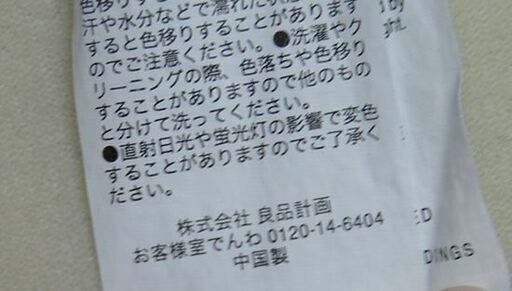 色移りする
汗や水分などで濡れた状
すると色移りすることがあります
のでご注意ください。●洗濯やク
リーニングの際、色落ちや色移り
することがありますので他のもの
と分けて洗ってください。
●直射日光や蛍光灯の影響で変色
することがありますのでご了承く
ださい。
株式会社 良品計画
お客様室でんわ0120-14-6404
中国製
by
ght.
ED
DINGS